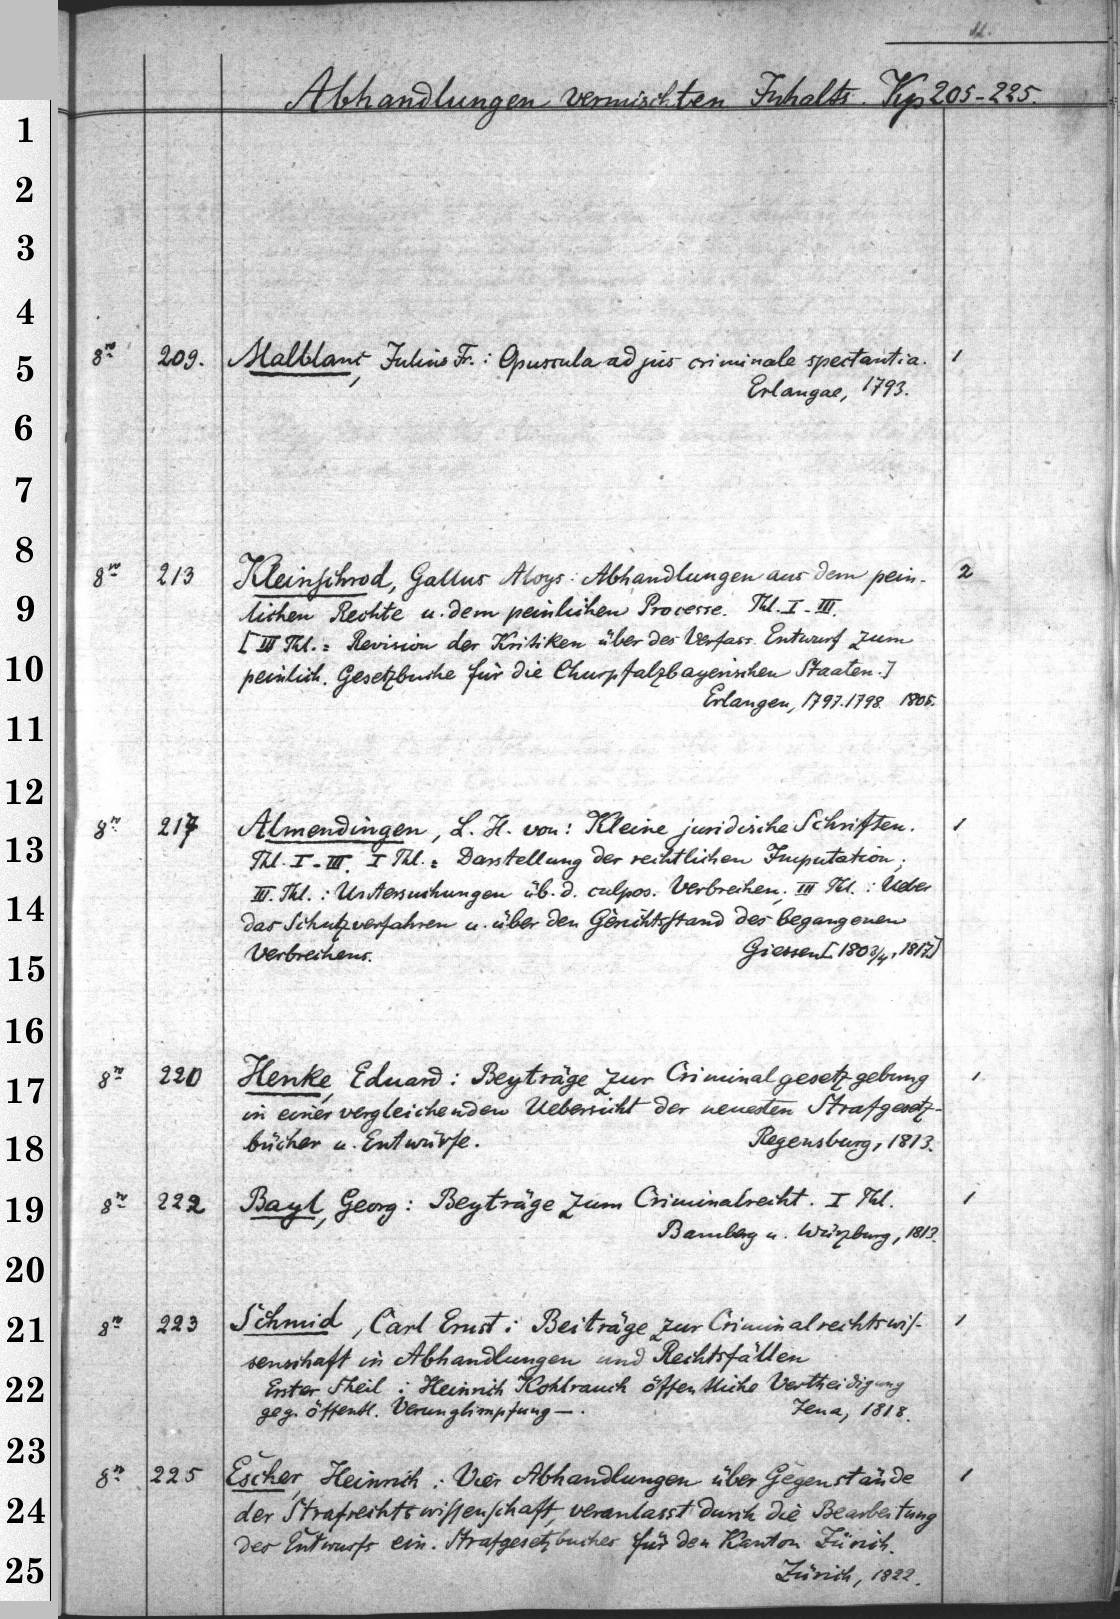 Abhandlungen vermischten Inhalts. Kp 205-225.
1
2
3
4
5
6
7
8
9
10
11
12
13
14
15
16
17
18
19
20
21
22
23
24
25
8º 209. Malblanc, Julius Fr.: Opuscula ad jus criminale spectantia. 1
Erlangae, 1793.
8º 213 Kleinschrod, Gallus Aloys: Abhandlungen aus dem pein-
lichen Rechte u. dem peinlichen Processe. Thl. I-III. 2
[III Thl. = Revision der Kritiken über des Verfass. Entwurf zum
peinlich. Gesetzbuche für die Churpfalzbayerischen Staaten.]
Erlangen, 1797.1798. 1805.
8º 217 Almendingen, L. H. von: Kleine juridische Schriften. 1
Thl. I-III. I Thl. = Darstellung der rechtlichen Imputation;
Thl.: Untersuchungen üb. d. culpos. Verbrechen; III Thl.: Ueber
das Schutzverfahren u. über den Gerichtsstand des begangenen
Verbrechens. Giessen [1803/4, 1817]
8º 220 Henke, Eduard: Beyträge zur Criminalgesetzgebung 1
in einer vergleichenden Uebersicht der neuesten Strafgesetz-
bücher u. Entwürfe. Regensburg, 1813.
8º 222 Bayl, Georg: Beyträge zum Criminalrecht. I Thl. 1
Bamberg u. Würzburg, 1813.
8º 223 Schmid, Carl Ernst: Beiträge zur Criminalrechtswis- 1
senschaft in Abhandlungen und Rechtsfällen
Erster Theil: Heinrich Kohlrausch öffentliche Vertheidigung
geg. öffentl. Verunglimpfung —. Jena, 1818.
8º 225 Escher, Heinrich: Vier Abhandlungen über Gegenstände 1
der Strafrechtswissenschaft, veranlasst durch die Bearbeitung
des Entwurfs ein. Strafgesetzbuches für den Kanton Zürich.
Zürich, 1822.